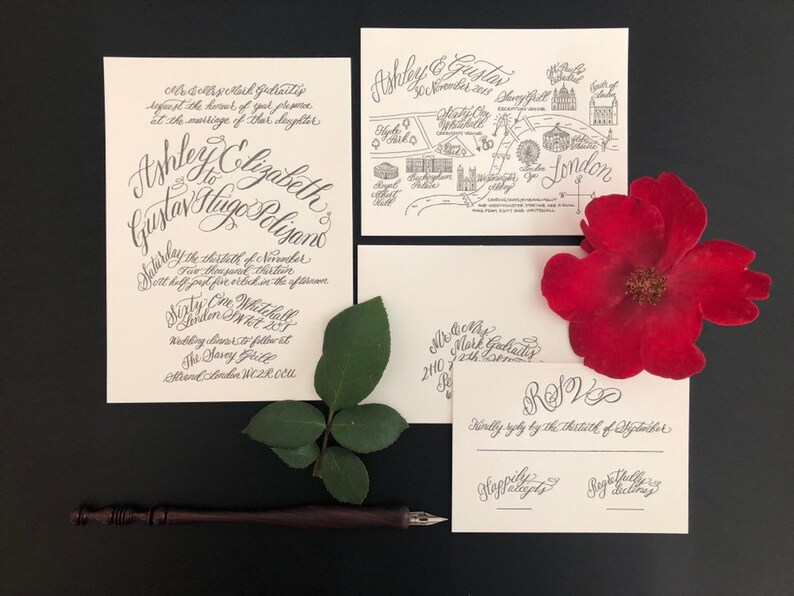 Mr & Mrs Mark Gudraitis
request the honour of your presence
at the marriage of their daughter
Ashley Elizabeth
to
Gustav Hugo Polisano
Saturday the thirtieth of November
Two thousand thirteen
At half past five o'clock in the afternoon
Sixty One Whitehall
London SW1A
Wedding dinner to follow at
The Savoy Grill
Strand, London WC2R 0EU
Ashley & Gustav
30 November 2013
St. Paul's
Cathedral
Tower of
London
Savoy Grill
RECEPTION VENUE
Sixty One
Whitehall
CEREMONY VENUE
Hyde
Park
Theatre
London
Eye
London
Buckingham
Palace
Westminster
Abbey
Royal
Albert
Hall
CHARING CROSS, EMBANKMENT
AND WESTMINSTER STATIONS ARE A
WALK FROM SIXTY ONE WHITEHALL
Mr & Mrs
Mark Gudraitis
2110
RSVP
Kindly reply by the thirtieth of September
Happily
accepts
Regretfully
declines